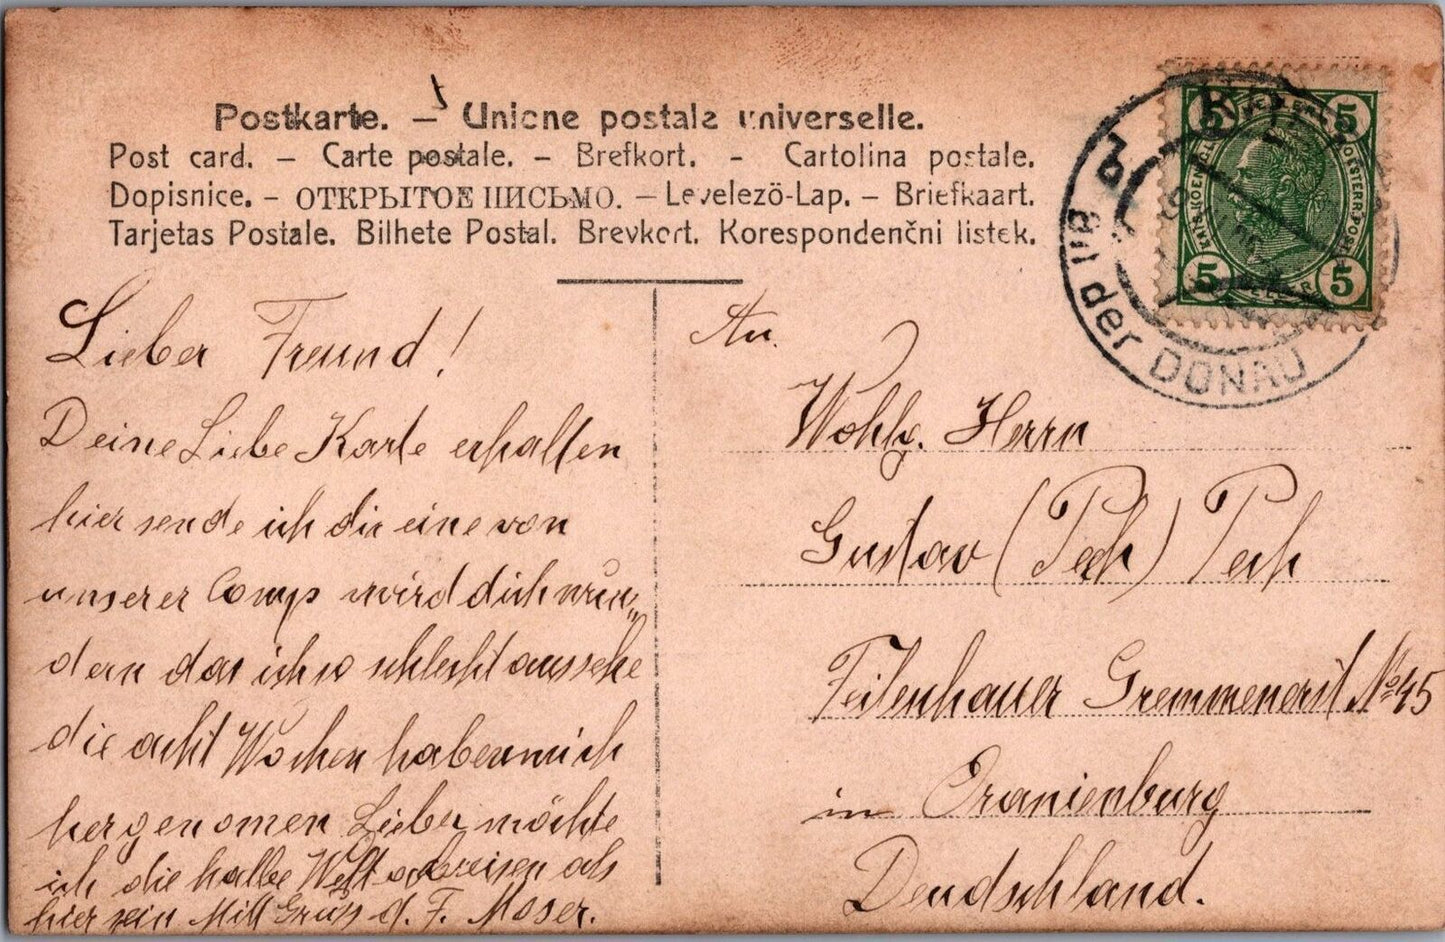 Postkarte. — Unione postale universelle.
Post card. – Carte postale. – Brefkort. - Cartolina postale.
Dopisnice. – ОТКРЫТОЕ ПИСЬМО. – Levelezö-Lap. – Briefkaart.
Tarjetas Postale. Bilhete Postal. Brevkort. Korespondenčni listek.
5 5
5 5
an der DONAU
Lieber Freund!
Deine Liebe Karte erhalten
hier sende ich dir eine von
unserer Comp wird dich wun„
dern das ich so schlecht aussehe
die acht Wochen haben mich
hergenomen Lieber möchte
ich die halbe Welt abreisen als
hier sein Mitt Gruss d. F. Moser.
An.
Wohlg. Herrn
Gustav (Pech) Pech
Feilenhauer Gremmenerst No 45
in Oranienburg
Deudschland.